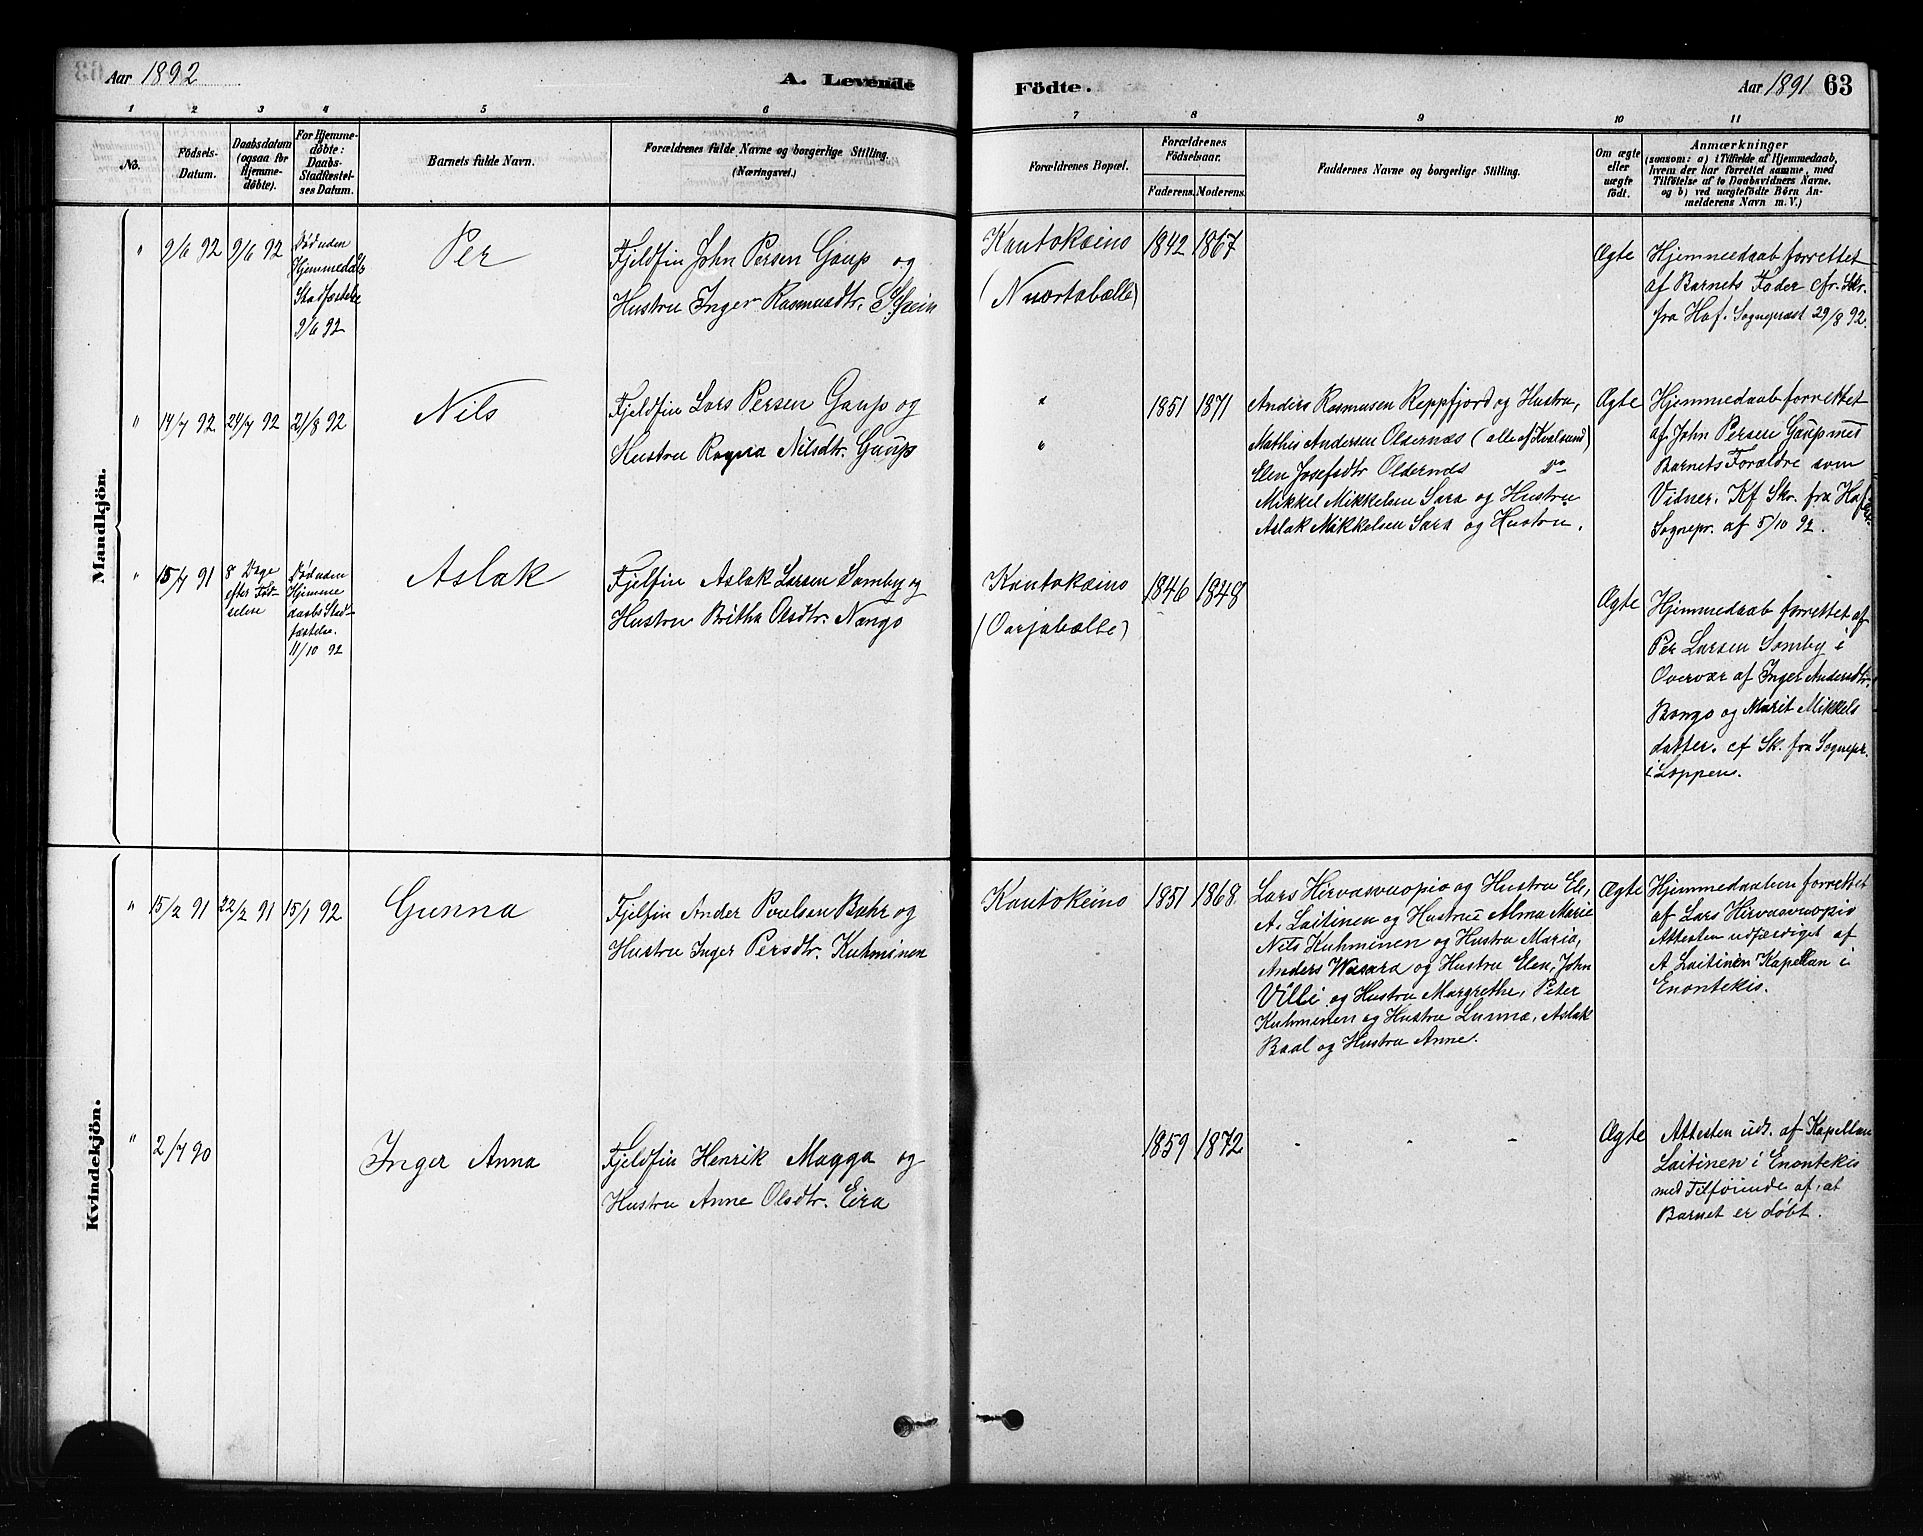 Aar 1892
A. Levende
Födte.
Aar 1891 63
1 2 3 4 5 6 7 8 9 10 11
No.
Födsels-
Datum.
Daabsdatum
(ogsaa for
Hjemme-
døbte).
For Hjemme-
døbte:
Daabs-
Stadfæstel-
ses Datum.
Barnets fulde Navn.
Forældrenes fulde Navne og borgerlige Stilling.
(Næringsvei.)
Forældrenes Bopæl.
Forældrenes
Födselsaar.
Faderens. Moderens.
Faddernes Navne og borgerlige Stilling.
Om ægte
eller
uægte
født.
Anmærkninger
(saasom: a) i Tilfælde af Hjemmedaab,
hvem der har forrettet samme, med
Tilføielse af to Daabsvidners Navne,
og b) ved uægtefødte Børn An-
melderens Navn m. V.)
Mandkjön.
" 9/6 92 9/6 92
Død uden
Hjemmedaabs
Stadfæstelse
9/6 92
Per
Fjeldfin John Persen Gaup og
Hustru Inger Rasmusdtr.
Kautokeino
(Nuortabælle)
1842 1867
Ægte
Hjemmedaab forrettet
af Barnets Fader cfr. Skr.
fra Haf. Sognepræst 29/8 92.
" 14/7 92 24/7 92 21/8 92
Nils
Fjeldfin Lars Persen Gaup og
Hustru Ragna Nilsdtr. Gaup
"
"
1851 1871
Anders Rasmusen Reppfjord og Hustru,
Mathis Andersen Oldernæs (alle af Kvalsund)
Elen Josefsdtr Oldernæs Do
Mikkel Mikkelsen Sara og Hustru
Aslak Mikkelsen Sara og Hustru.
Ægte
Hjemmedaab forrettet
af John Persen Gaup med
Barnets Forældre som
Vidner. Kf Skr. fra Haf
Sognepr. af 5/10 92.
" 15/7 91
8 Dage
efter Fød-
selen
Død uden
Hjemme
daabs Stad
fæstelse.
11/10 92
Aslak
Fjelfin Aslak Larsen Somby og
Hustru Britha Olsdtr. Nango
Kautokeino
(Oarjabælle)
1846 1848
Ægte
Hjemmedaab forrettet af
Per Larsen Somby i
Overvær af Inger Andersdtr.
Bongo og Marit Mikkels
datter. cf Sk. fra Sognepr.
i Loppen.
Kvindekjön.
" 15/2 91 22/2 91 15/1 92
Gunna
Fjelfin Ander Poulsen Bahr og
Hustru Inger Persdtr. Kuhminen
Kautokeino
1851 1868
Lars Hirvasvuopio og Hustru El.,
A. Laitinen og Hustru Alma Marie
Nils Kuhminen og Hustru Maria,
Anders Wasara og Hustru Elen, John
Villi og Hustru Margrethe, Peter
Kuhminen og Hustru Lunna, Aslak
Baal og Hustru Anne.
Ægte
Hjemmedaaben forrettet
af Lars Hirvasvuopio
Attesten udfærdiget af
A Laitinen Kapellan i
Enontekis.
" 2/7 90
Inger Anna
Fjeldfin Henrik Magga og
Hustru Anne Olsdtr. Eira
1859 1872
- " -
Ægte
Attesten udt. af Kapellan
Laitinen i Enontekis
med Tilføiende af, at
Barnet er døbt.